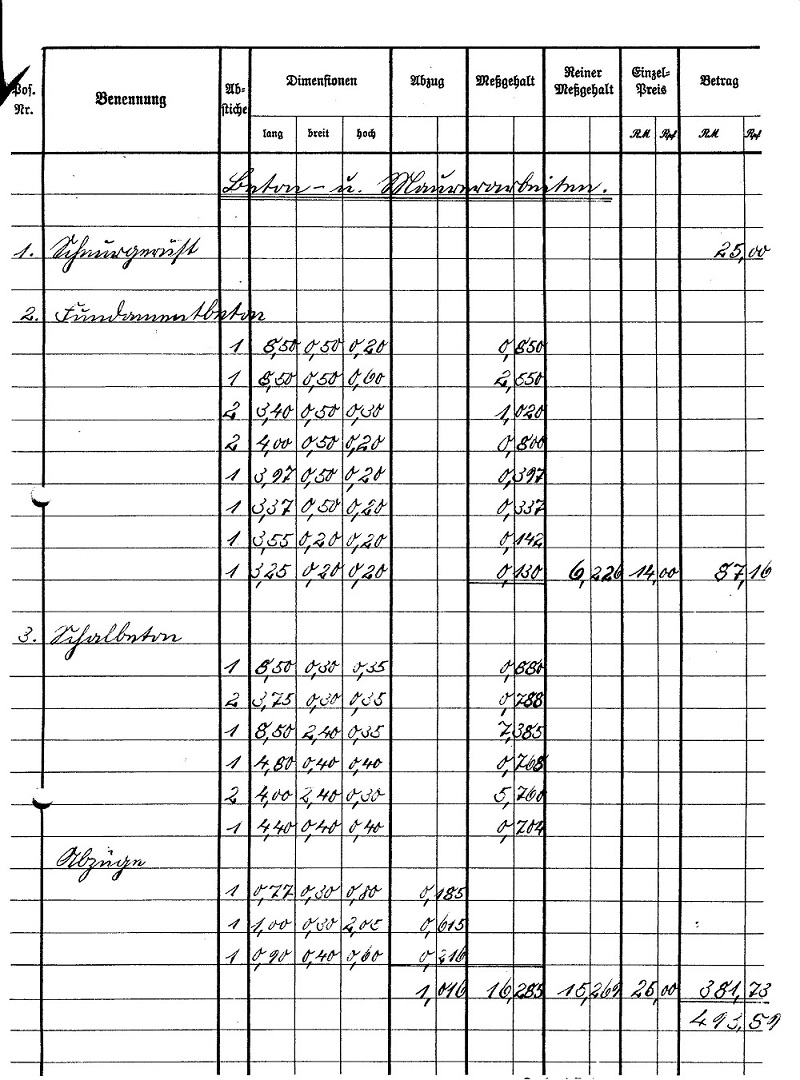 Pos. Nr. Benennung Ab-stiche Dimensionen Abzug Meßgehalt Reiner Meßgehalt Einzel-Preis Betrag
lang breit hoch RM Rpf RM Rpf
Beton- u. Maurerarbeiten.
1. Schnurgerüst 25,00
2. Fundamentbeton
1 8,50 0,50 0,20 0,850
1 8,50 0,50 0,60 2,550
2 3,40 0,50 0,30 1,020
2 4,00 0,50 0,20 0,800
1 3,97 0,50 0,20 0,397
1 3,37 0,50 0,20 0,337
1 3,55 0,20 0,20 0,142
1 3,25 0,20 0,20 0,130 6,226 14,00 87,16
3. Schalbeton
1 8,50 0,30 0,35 0,880
2 3,75 0,30 0,35 0,788
1 8,50 2,40 0,35 7,385
1 4,80 0,40 0,40 0,768
2 4,00 2,40 0,30 5,760
1 4,40 0,40 0,40 0,704
Abzüge
1 0,77 0,30 0,80 0,185
1 1,00 0,30 2,05 0,615
1 0,90 0,40 0,60 0,216
1,016 16,285 15,269 25,00 381,73
493,59